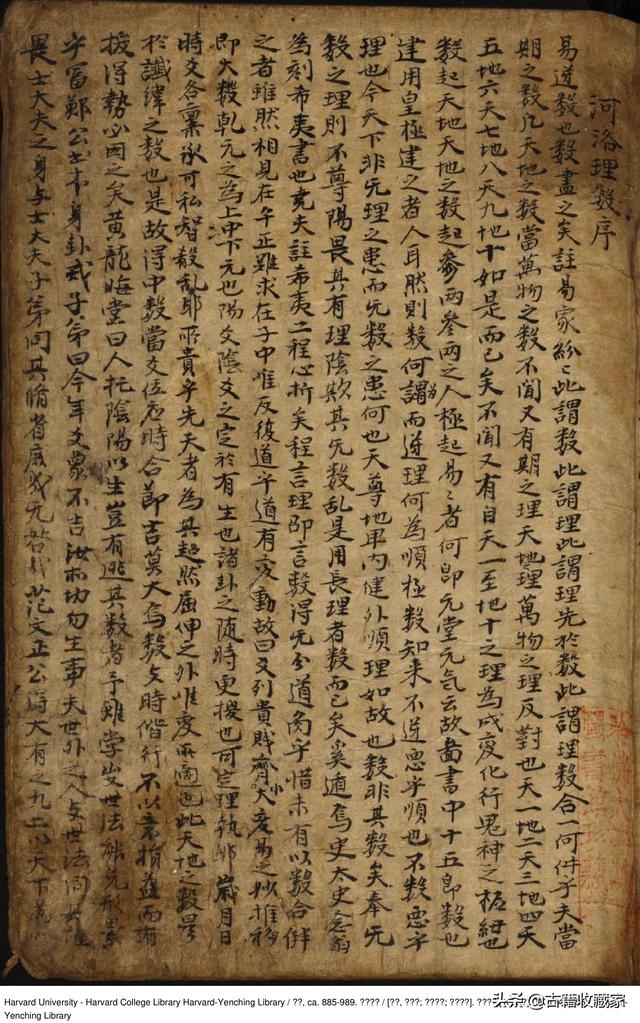 河洛理数序
易逆数也数盡之矣註易家紛〻此謂数此謂理此謂理先於数此謂理数合一何件乎夫當
期之数凢天地之数當萬物之数不聞又有期之理天地理萬物之理反對也天一地二天三地四天
五地六天七地八天九地十如是而已矣不聞又有自天一至地十之理為成变化行鬼神之樞紐也
数起天地天地之数起參兩參兩之人極起易〻者何即元堂元气云故啚書中十五即数也
建用皇極建之者人耳然則数何謂而逆理何為順極数知来不逆悪乎順也不数悪乎
理也今天下非无理之患而无数之患何也天尊地卑内健外順理如故也数非其数矣奉无
数之理則不尊陽畏其有理陰欺其无数乱是用長理者数而已矣奚逎焉史太史念翁
為刻希夷書也堯夫註希夷二程心折矣程言理即言数得无分道离乎惜未有以数合併
之者雖然相見在午正難求在子中惟反復道乎道有变動故曰爻列貴賎齊小大变易之妙推移
即大数乾元之為上中下元也陽爻陰爻之定於有生也諸卦之随時更換也可定理執耶歲月日
時文各禀承可私智殽乱耶所貴乎先天者為其起然屈伸之外惟变所適也此天地之数异
於讖緯之数也是故得中数當爻位应時合節吉莫大焉数与時偕行不以意損益而有
援得勢必因之矣黄龍晦堂曰人托陰陽以生豈有逃其数者予雖学出世法能免形累
乎冨鄭公士本身卦戒子弟曰今年文象不吉汝亦切勿生事夫世外之人与世法同
畏士大夫之身与士大夫子弟同其脩省庶或无咎 范文正公得大有之九二以天下為
Harvard University - Harvard College Library Harvard-Yenching Library / ??, ca. 885-989. ???? / [??, ???; ????; ????]. ???
Yenching Library
头条 @古籍收藏家